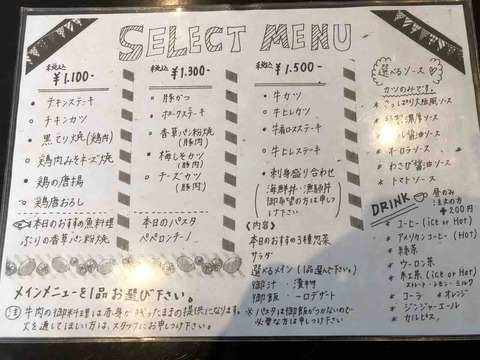 SELECT MENU
税込
¥1.100-
・チキンステキ
・チキンカツ
○黒てり焼(鶏肉)
○鶏肉みそチーズ焼
○鶏の唐揚
○鶏唐おろし
本日のおすすめ魚料理
ぶりの香草パン粉焼
税込
¥1.300-
・豚かつ
・ポークステーキ
・香草パン粉焼
(豚肉)
・梅しそカツ
(豚肉)
・チーズカツ
(豚肉)
本日のパスタ
ペペロンチーノ
税込
¥1.500-
・牛カツ
・牛ヒレカツ
・牛肩ロスステキ
・牛ヒレステキ
・刺身盛り合わせ
(海鮮丼・漁師丼
御希望の方は申し
つけ下さい)
(内容)
本日のおすすめ3種惣菜
サラダ
選べるメイン(1品選んで下さい)
御汁・漬物
御飯・一口デザート
※パスタは御飯がつかないので
必要な方は申しつけ下さい
選べるソース♡
カツのみです。
* さっぱり大阪風ソース
* 特製濃厚ソース
醤油ソース
* オーロラソース
* わさび醤油ソース
* トマトソース
DRINK
昼のみ
注文の方
¥200円
* コーヒー(ice or Hot)
* アメリカンコーヒー(Hot)
* 緑茶
* ウーロン茶
* 紅茶(ice or Hot)
ストレート・レモン・ミルク
* コーラ * オレンジ
* ジンジャーエール
* カルピス
メインメニューを1品お選び下さい。
注 牛肉の御料理は赤身が残ったままの提供になります。
火を通してほしい方は、スタッフにお申しつけ下さい。